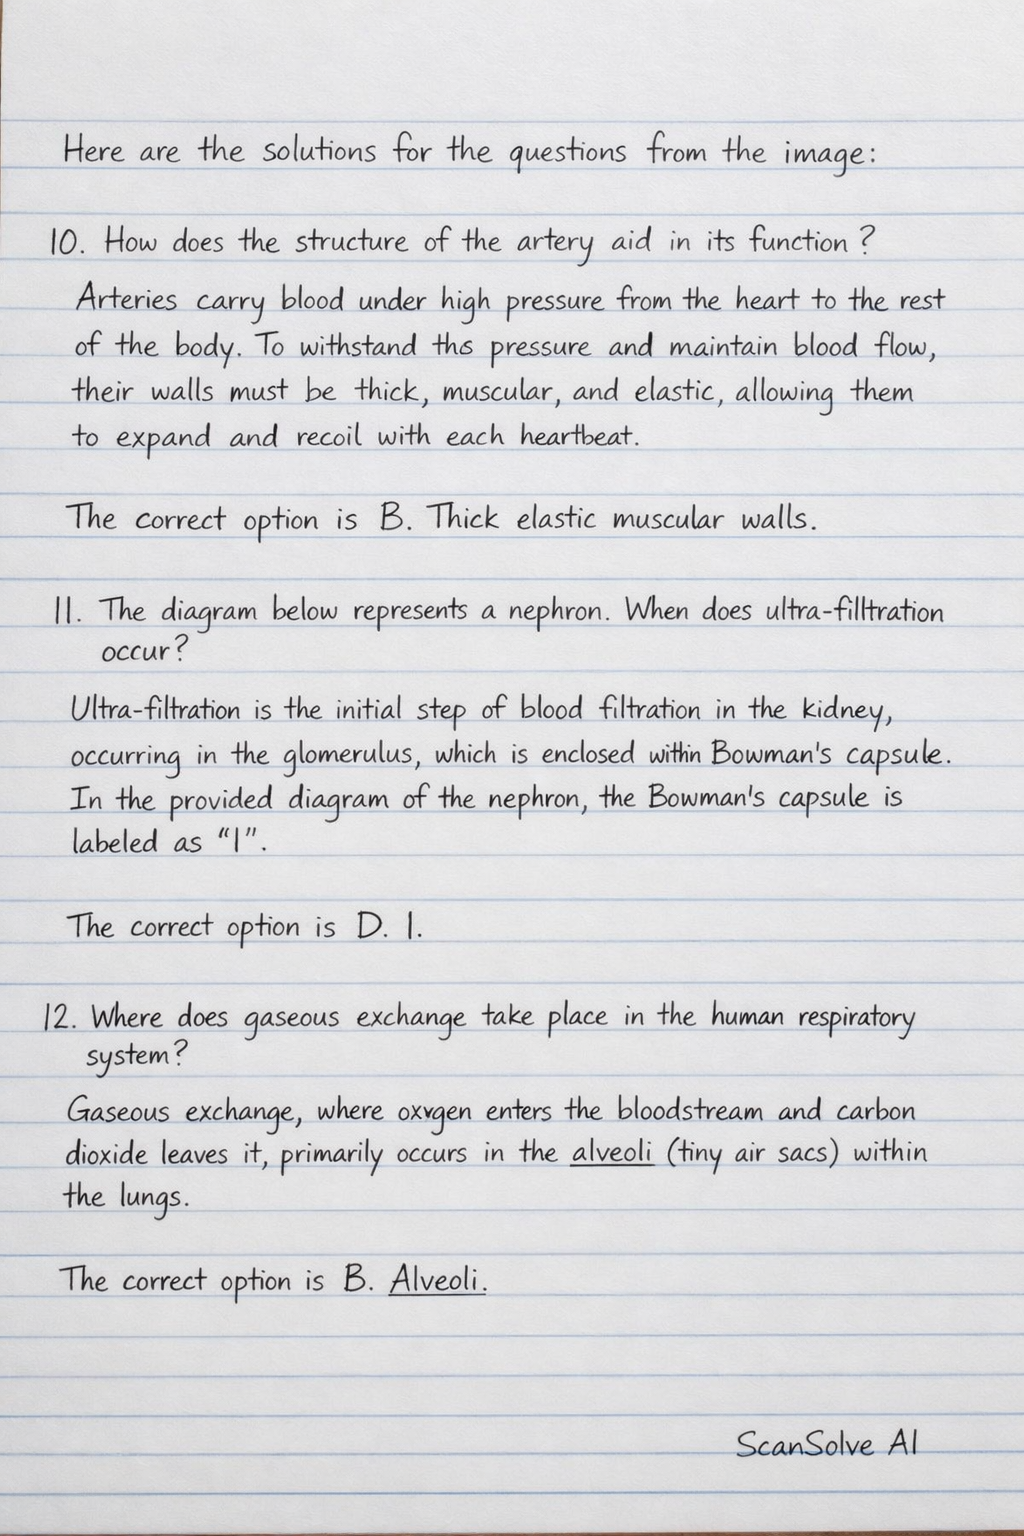 Here are the solutions for the questions from the image:
10. How does the structure of the artery aid in its function ?
Arteries carry blood under high pressure from the heart to the rest
of the body. To withstand ths pressure and maintain blood flow,
their walls must be thick, muscular, and elastic, allowing them
to expand and recoil with each heartbeat.
The correct option is B. Thick elastic muscular walls.
11. The diagram below represents a nephron. When does ultra-filltration
occur?
Ultra-filtration is the initial step of blood filtration in the kidney,
occurring in the glomerulus, which is enclosed within Bowman's capsule.
In the provided diagram of the nephron, the Bowman's capsule is
labeled as “I”.
The correct option is D. I.
12. Where does gaseous exchange take place in the human respiratory
system?
Gaseous exchange, where oxygen enters the bloodstream and carbon
dioxide leaves it, primarily occurs in the alveoli (tiny air sacs) within
the lungs.
The correct option is B. Alveoli.
ScanSolve AI